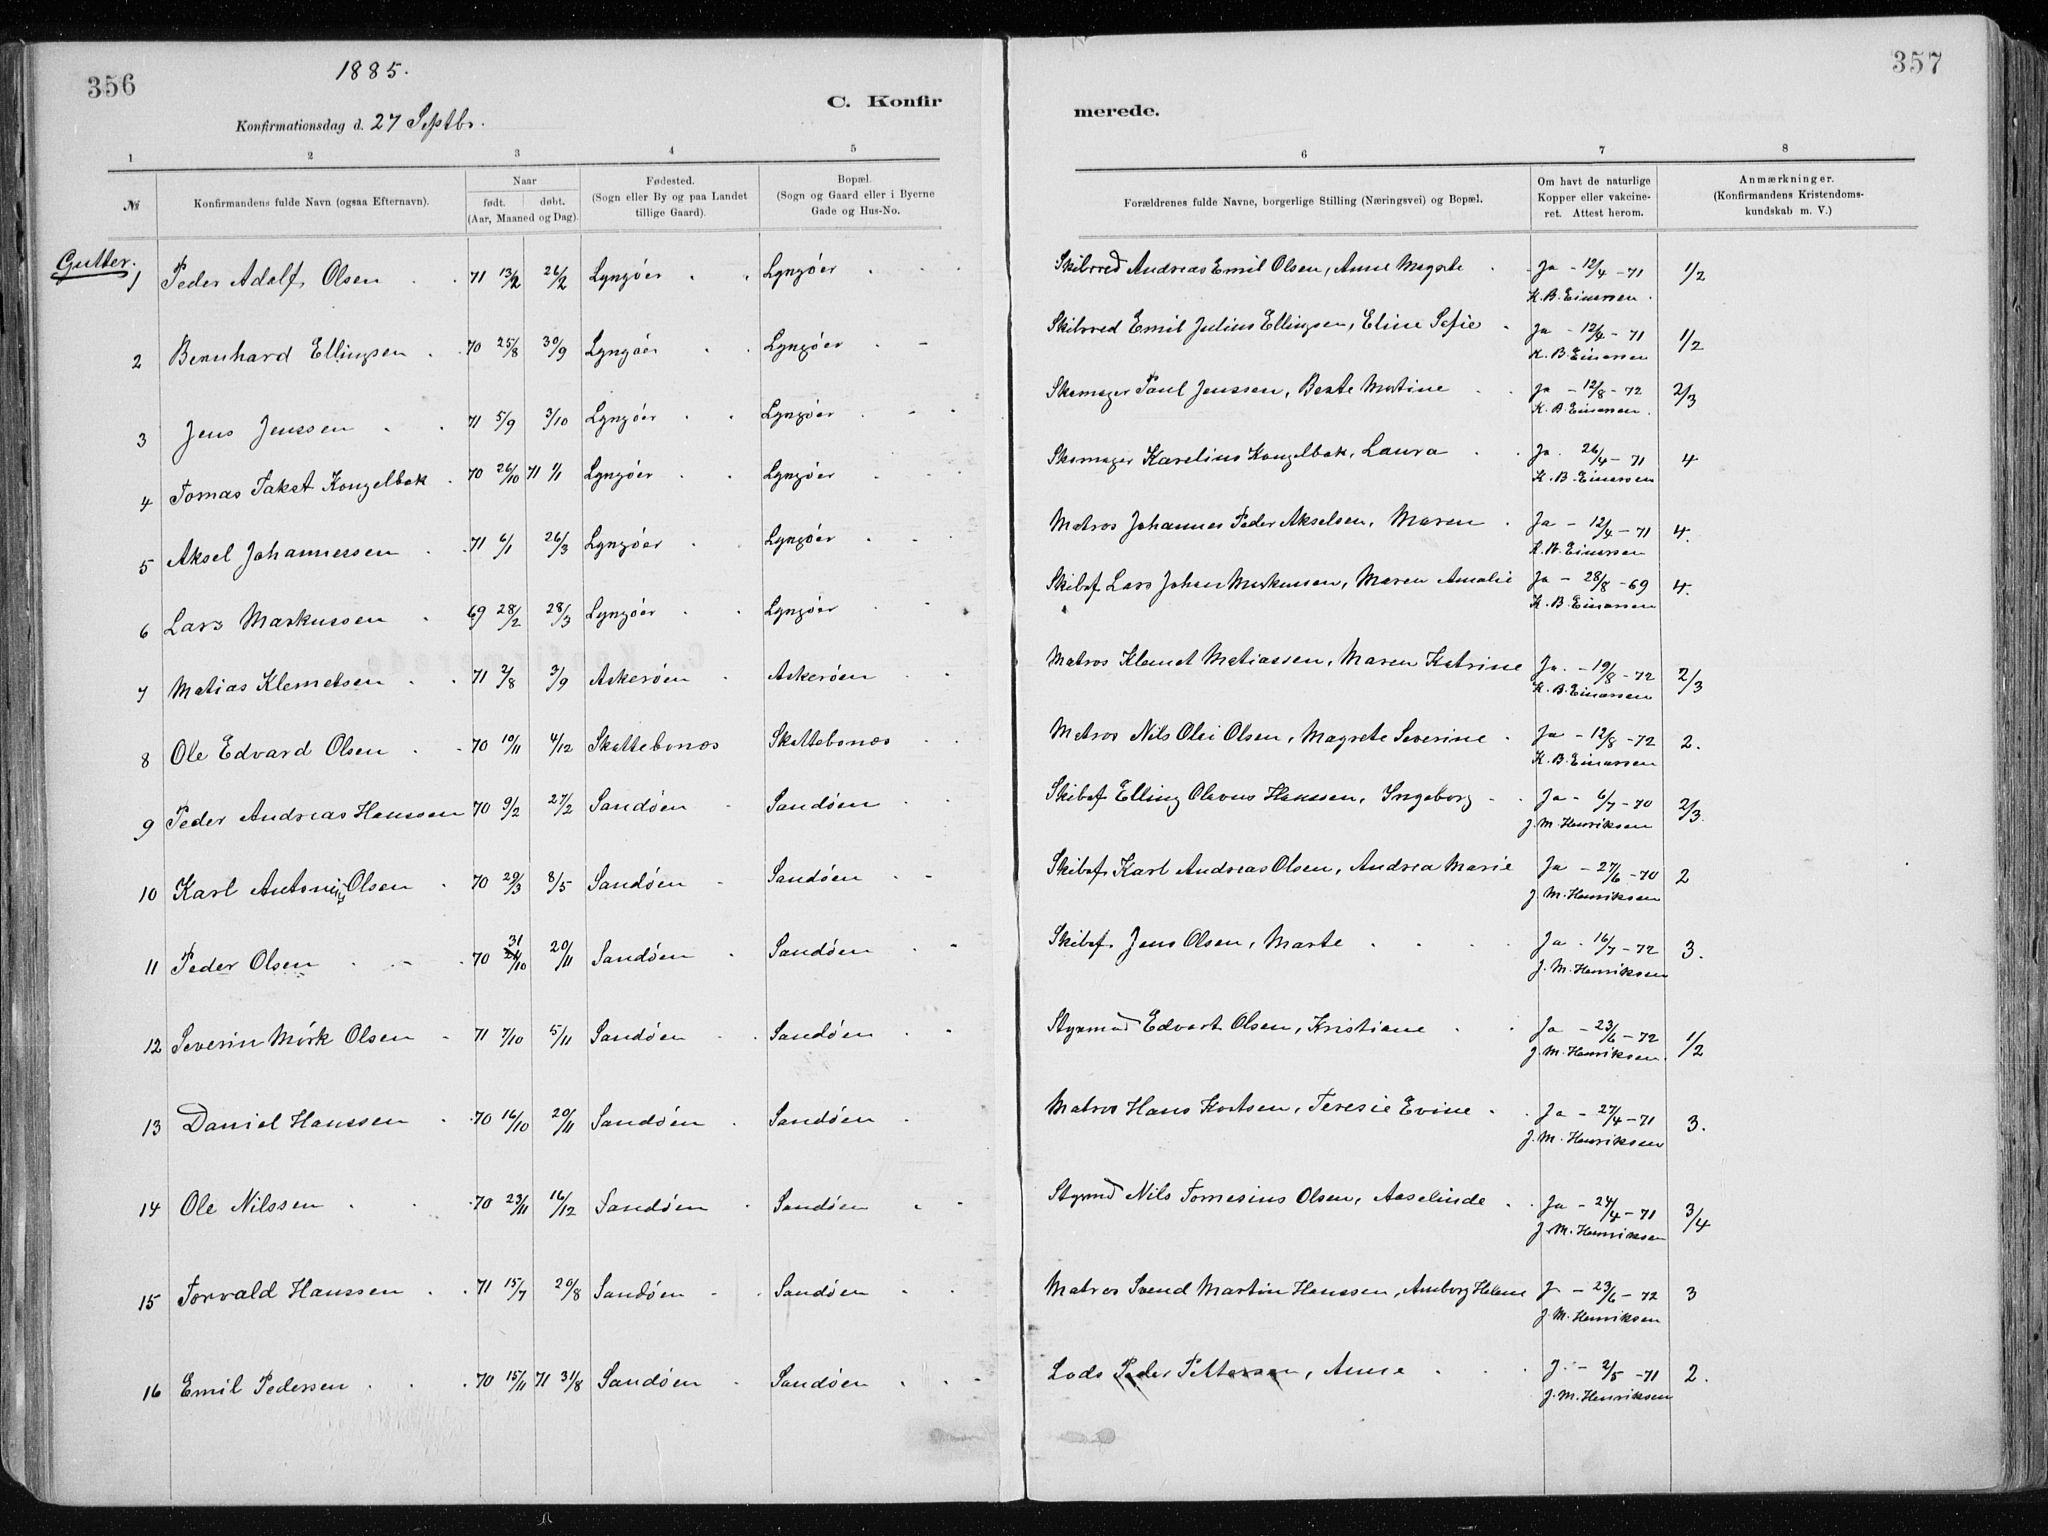 356
1885.
C. Konfir
Konfirmationsdag d. 27 Septbr.
1 2 3 4 5
№ Konfirmandens fulde Navn (ogsaa Efternavn). Naar født. døbt. (Aar, Maaned og Dag). Fødested. (Sogn eller By og paa Landet tillige Gaard). Bopæl. (Sogn og Gaard eller i Byerne Gade og Hus-No.
Gutter.
1 Peder Adolf Olsen 71 13/2 26/2 Lyngöer Lyngöer
2 Bernhard Ellingsen 70 25/8 30/9 Lyngöer Lyngöer
3 Jens Jenssen 71 5/9 3/10 Lyngöer Lyngöer
4 Tomas Takst Kongelbek 70 26/10 71 1/1 Lyngöer Lyngöer
5 Aksel Johannessen 71 6/1 26/3 Lyngöer Lyngöer
6 Lars Markussen 69 28/2 28/3 Lyngöer Lyngöer
7 Matias Klemetsen 71 2/8 3/9 Askeröen Askeröen
8 Ole Edvard Olsen 70 10/11 4/12 Skottebonæs Skottebonæs
9 Peder Andreas Hanssen 70 9/2 27/2 Sandöen Sandöen
10 Karl Antonius Olsen 70 29/3 8/5 Sandöen Sandöen
11 Peder Olsen 70 31/10 20/11 Sandöen Sandöen
12 Severin Mörk Olsen 71 7/10 5/11 Sandöen Sandöen
13 Daniel Hanssen 70 16/10 20/11 Sandöen Sandöen
14 Ole Nilssen 70 23/11 16/12 Sandöen Sandöen
15 Torvald Hanssen 71 15/7 20/8 Sandöen Sandöen
16 Emil Pedersen 70 15/11 71 31/8 Sandöen Sandöen
357
merede.
6 7 8
Forældrenes fulde Navne, borgerlige Stilling (Næringsvei) og Bopæl. Om havt de naturlige Kopper eller vakcineret. Attest herom. Anmærkninger. (Konfirmandens Kristendomskundskab m. V.)
Andreas Emil Olsen, Anne Magrete Ja - 12/4 - 71 1/2
K. B. Einersen.
Emil Julius Ellingsen, Eline Sofie Ja - 12/4 - 71 1/2
K. B. Einersen
Skomager Paul Jenssen, Berte Martine Ja - 12/8 - 72 2/3
K. B. Einersen.
Skomager Karelius Kongelbek, Laura Ja. 26/4 - 71 4
K. B. Einersen
Matros Johannes Peder Akselsen, Maren Ja - 12/4 - 71 4.
K. B. Einersen
Skibsf Lars Johan Markussen, Maren Amalie Ja - 28/8 - 69 4.
K. B. Einersen
Matros Klemet Matiassen, Maren Katrine Ja. - 19/8 - 72 2/3
K. B. Einersen
Matros Nils Olai Olsen, Magrete Severine Ja - 12/8 - 72 2.
K. B. Einersen
Skibsf Elling Olavus Hanssen, Ingeborg Ja - 6/7 - 70 2/3.
J. M. Henriksen
Skibsf. Karl Andreas Olsen, Andrea Marie Ja - 27/6 - 70 2
J. M. Henriksen
Skibsf. Jens Olsen, Marte Ja. 16/7 - 72 3.
J. M. Henriksen
Styrmd Edvart Olsen, Kristiane Ja - 23/6 - 72 1/2
J. M. Henriksen.
Matros Hans Kortsen, Teresie Evine Ja - 27/4 - 71 3.
J. M. Henriksen
Styrmd Nils Tomesius Olsen, Aaselinde Ja - 24/4 - 71 3/4
J. M. Henriksen
Matros Svend Martin Hanssen, Anborg Helene J - 23/6 - 72 3
J. M. Henriksen
Lods Peder Pettersen, Anne J. - 2/5 - 71 2.
J. M. Henriksen